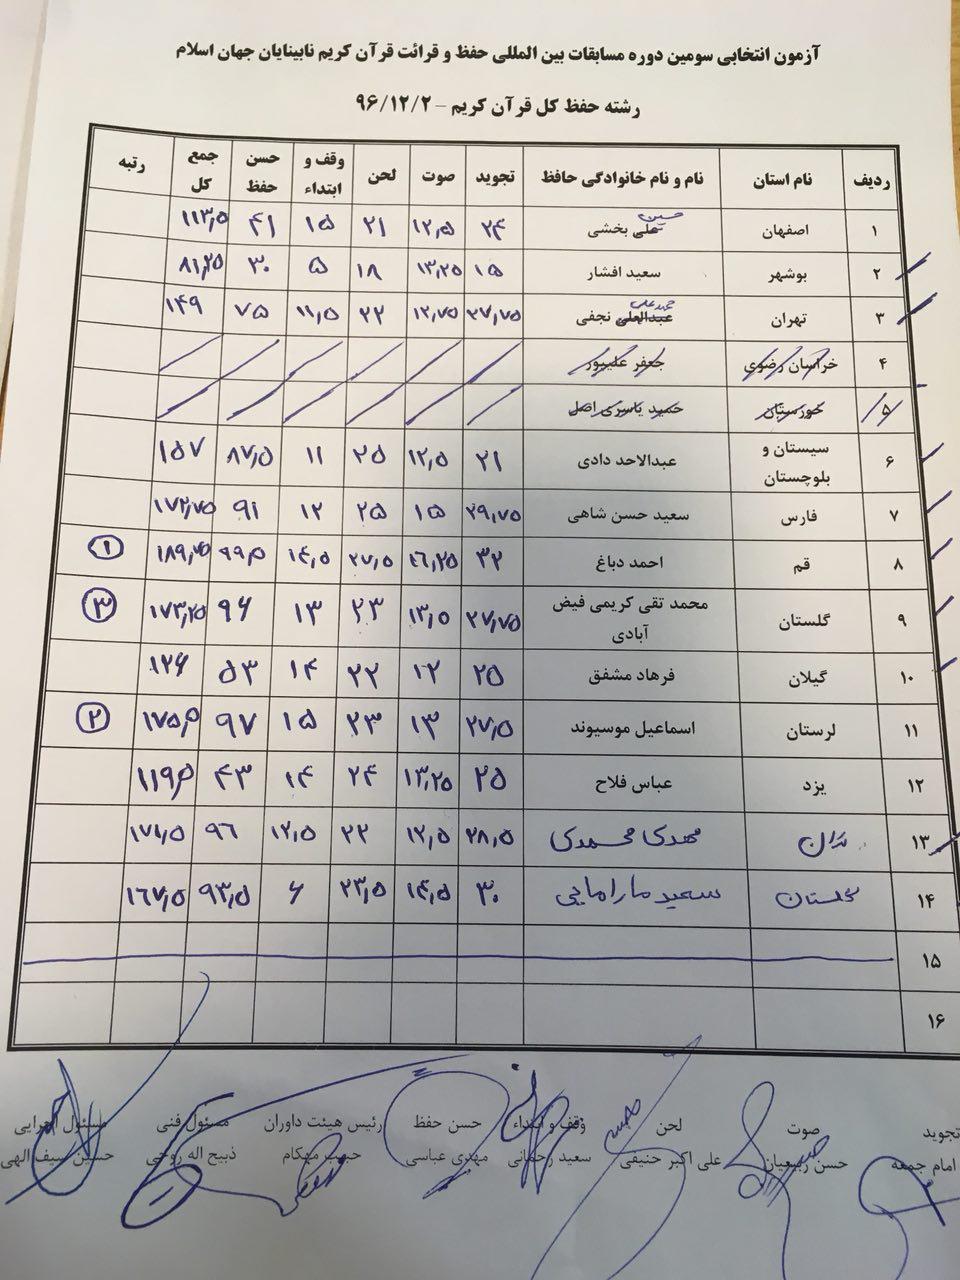 آزمون انتخابی سومین دوره مسابقات بین المللی حفظ و قرائت قرآن کریم نابینایان جهان اسلام
رشته حفظ کل قرآن کریم – ۹۶/۱۲/۲
ردیف نام استان نام و نام خانوادگی حافظ تجوید صوت لحن وقف و ابتداء حسن حفظ جمع کل رتبه
۱ اصفهان حسین علی بخشی ۲۴ ۱۲٫۵ ۲۱ ۱۵ ۴۱ ۱۱۳٫۵
۲ بوشهر سعید افشار ۱۵ ۱۳٫۲۵ ۱۸ ۵ ۳۰ ۸۱٫۲۵
۳ تهران محمدعلی عبدالعلی نجفی ۲۷٫۷۵ ۱۲٫۷۵ ۲۲ ۱۱٫۵ ۷۵ ۱۴۹
۴ خراسان رضوی جعفر علیپور
۵ خوزستان حمید یاسری اصل
۶ سیستان و بلوچستان عبدالاحد دادی ۲۱ ۱۲٫۵ ۲۵ ۱۱ ۸۷٫۵ ۱۵۷
۷ فارس سعید حسن شاهی ۲۹٫۷۵ ۱۵ ۲۵ ۱۲ ۹۱ ۱۷۲٫۷۵
۸ قم احمد دباغ ۳۲ ۱۶٫۲۵ ۲۷٫۵ ۱۴٫۵ ۹۹ ۱
۹ گلستان محمد تقی کریمی فیض آبادی ۲۷٫۷۵ ۱۳٫۵ ۲۳ ۱۳ ۹۶ ۱۷۳٫۲۵ ۳
۱۰ گیلان فرهاد مشفق ۲۵ ۱۲ ۲۲ ۱۴ ۵۳ ۱۲۶
۱۱ لرستان اسماعیل موسیوند ۲۷٫۵ ۱۳ ۲۳ ۱۵ ۹۷ ۱۷۵٫۵ ۲
۱۲ یزد عباس فلاح ۲۵ ۱۳٫۲۵ ۲۴ ۱۴ ۴۳ ۱۱۹
۱۳ مهدی محمدی ۲۸٫۵ ۱۲٫۵ ۲۲ ۱۲٫۵ ۹۶ ۱۷۱٫۵
۱۴ گلستان سعید مارامایی ۳۰ ۱۴٫۵ ۲۳٫۵ ۶ ۹۳٫۵ ۱۶۷٫۵
۱۵
۱۶
تجوید صوت لحن وقف و ابتداء حسن حفظ رئیس هیئت داوران مسئول فنی مسئول اجرایی
امام جمعه حسن ربیعیان علی اکبر حنیفی سعید رحمانی مهدی عباسی حبیب مهکام ذبیح اله روحی حسین سیف الهی